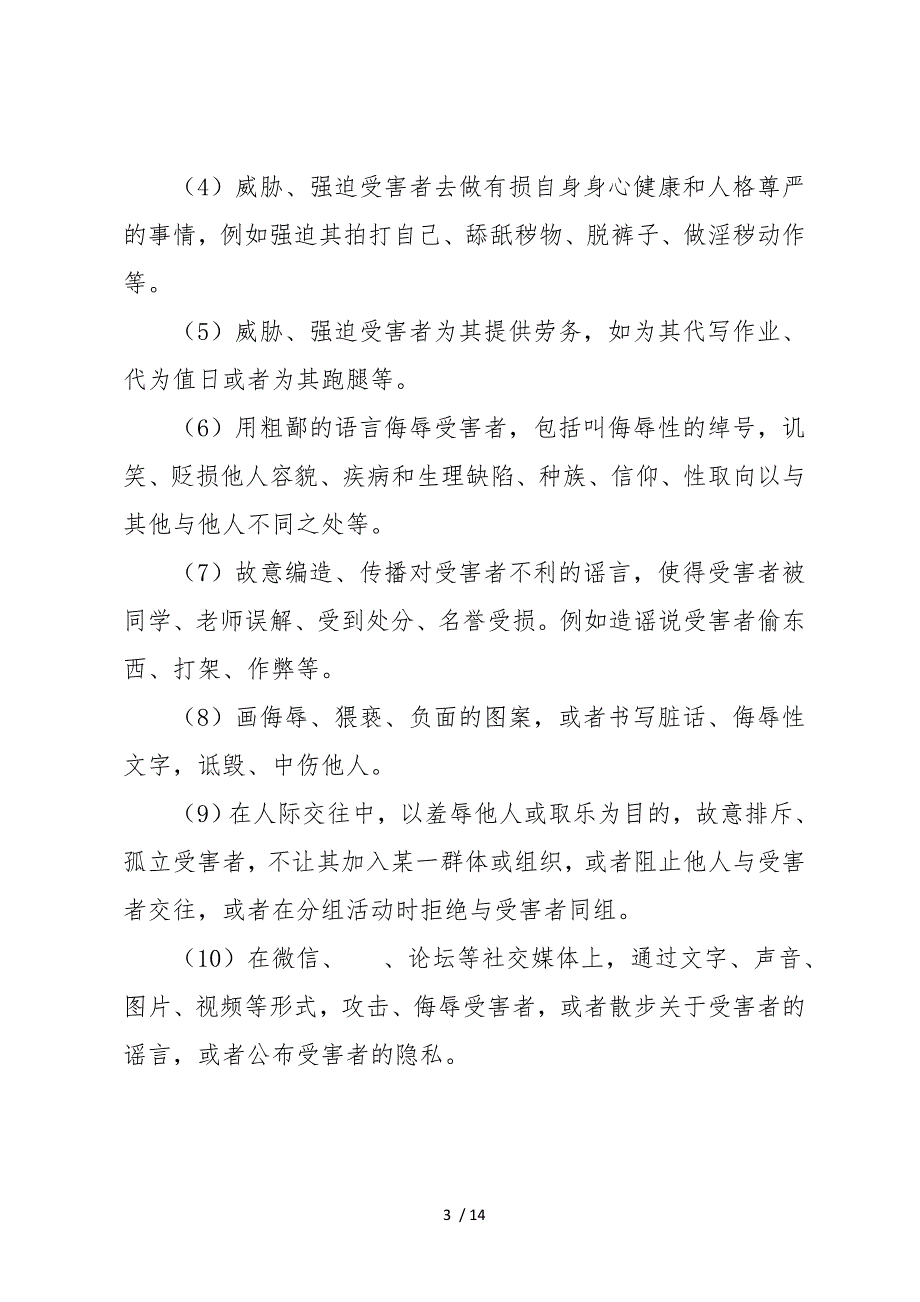 （4）威胁、强迫受害者去做有损自身身心健康和人格尊严
的事情，例如强迫其拍打自己、舔舐秽物、脱裤子、做淫秽动作
等。
（5）威胁、强迫受害者为其提供劳务，如为其代写作业、
代为值日或者为其跑腿等。
（6）用粗鄙的语言侮辱受害者，包括叫侮辱性的绰号，讥
笑、贬损他人容貌、疾病和生理缺陷、种族、信仰、性取向以与
其他与他人不同之处等。
（7）故意编造、传播对受害者不利的谣言，使得受害者被
同学、老师误解、受到处分、名誉受损。例如造谣说受害者偷东
西、打架、作弊等。
（8）画侮辱、猥亵、负面的图案，或者书写脏话、侮辱性
文字，诋毁、中伤他人。
（9）在人际交往中，以羞辱他人或取乐为目的，故意排斥、
孤立受害者，不让其加入某一群体或组织，或者阻止他人与受害
者交往，或者在分组活动时拒绝与受害者同组。
（10）在微信、　　、论坛等社交媒体上，通过文字、声音、
图片、视频等形式，攻击、侮辱受害者，或者散步关于受害者的
谣言，或者公布受害者的隐私。
3 / 14